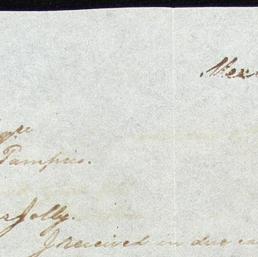 Mex
Tampico.
Jolly.
I received in due co